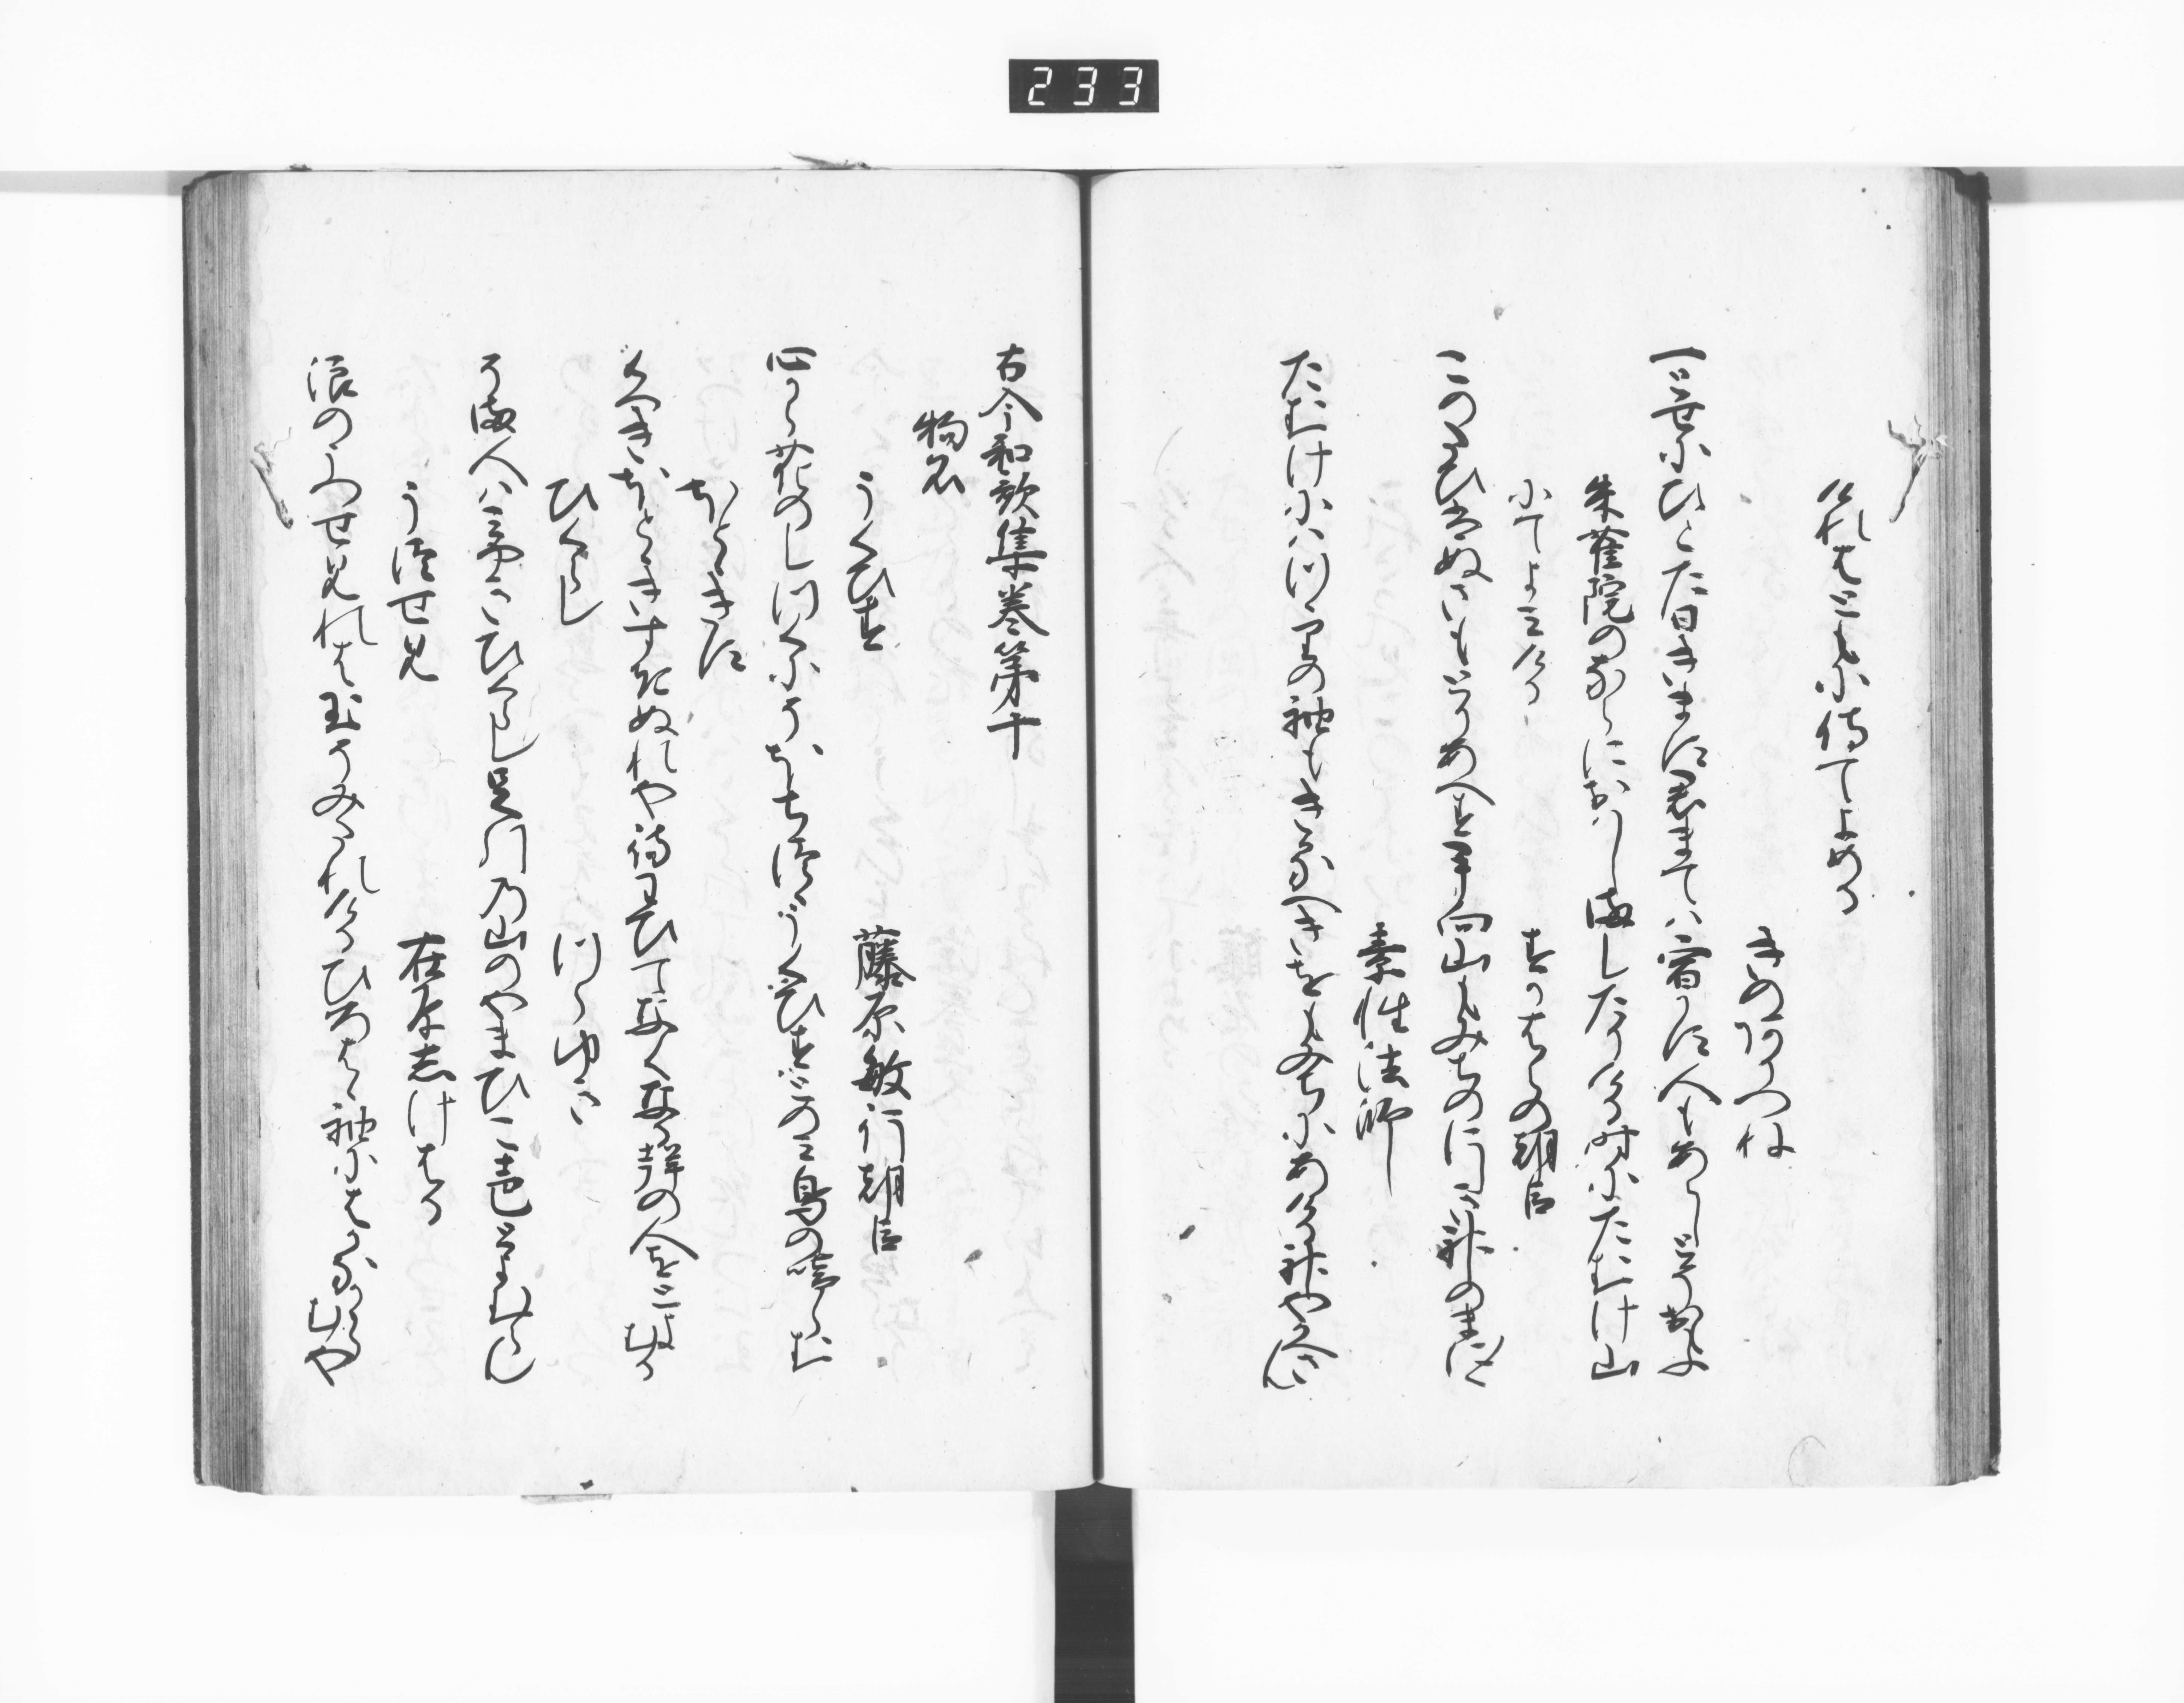 233
けれはともに侍てよめる
きのありつね
一とせにひとたひきます君まては宿かす人もあらしとそ思ふ
朱雀院のならにおはしましたりける時にたむけ山
にてよみける
すかはらの朝臣
このたひはぬさもとりあへす手向山もみちのにしき神のまに〱
素性法師
たむけにはつゝりの袖もきるへきにもみちにあける神やかへさん
古今和歌集巻第十
物名
うくひす
藤原敏行朝臣
心から花のしつくにそほちつゝうくひすとのみ鳥の啼らむ
ほとゝきす
くへきほとときすきぬれや待わひて鳴くなる声の人をとよむる
ひくらし
つらゆき
そま人は宮木ひくらし足引の山のやまひこ声とよむなり
うつせみ
在原しけはる
浪のうつせみれは玉そみたれけるひろはゝ袖にはかなからむや